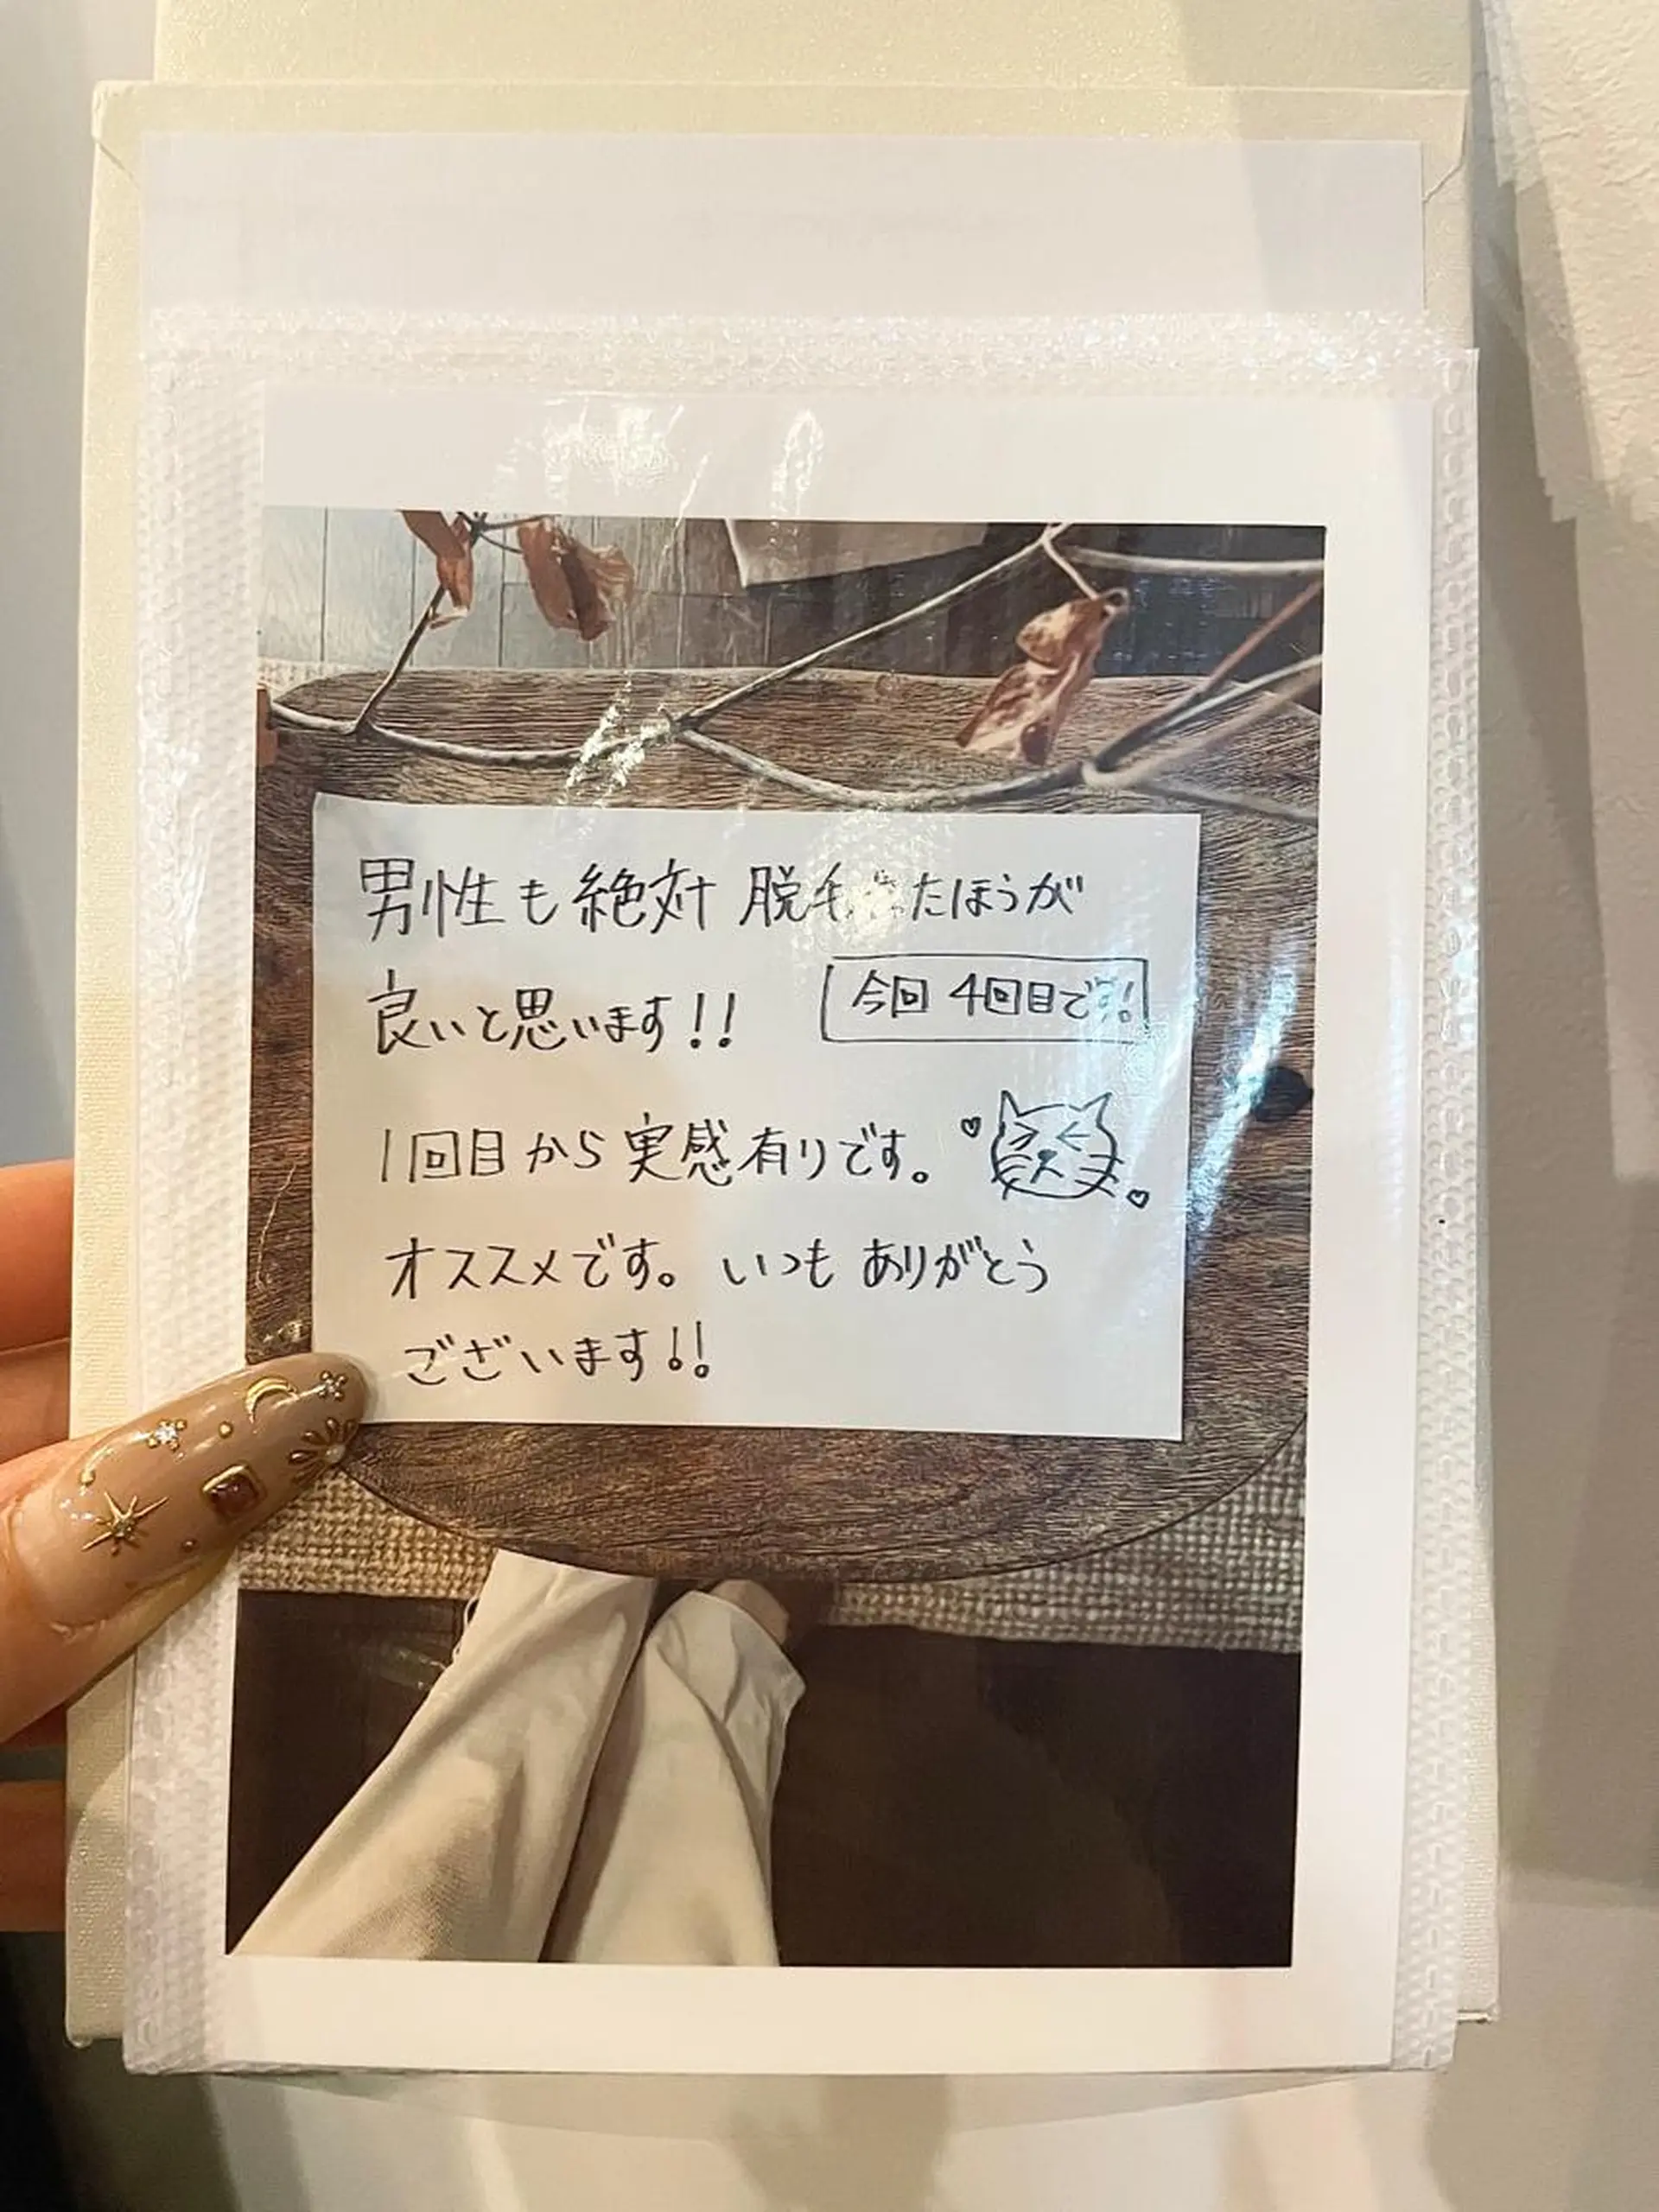 男性も絶対 脱毛したほうが
良いと思います!!
今回 4回目です!
1回目から実感有りです。
オススメです。いつも ありがとう
ございます!!